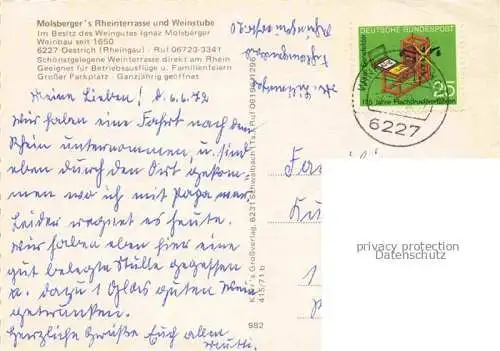 Molsberger's Rheinterrasse und Weinstube
Im Besitz des Weingutes Ignaz Molsberger
Weinbau seit 1650
6227 Oestrich (Rheingau) · Ruf 06723-3341
Schönstgelegene Weinterrasse direkt am Rhein
Geeignet für Betriebsausflüge u. Familienfeiern
Großer Parkplatz - Ganzjährig geöffnet
Meine Lieben! d. 6.6.72
Wir haben eine Fahrt nach dem
Rhein unternommen, u. sind
eben durch den Ort gekom-
men wo ich mit Papa war.
Leider regnet es heute.
Wir haben eben hier eine
gut belegte Stulle gegessen
u. dazu 1 Glas guten Wein
getrunken.
Herzliche Grüße Euch allen
Mutti.
Großverlag, 6231 Schwalbach
415/71 b
982
DEUTSCHE BUNDESPOST
25
175 Jahre Flachdruckverfahren
6227
Fa
1
privacy protection
Datenschutz